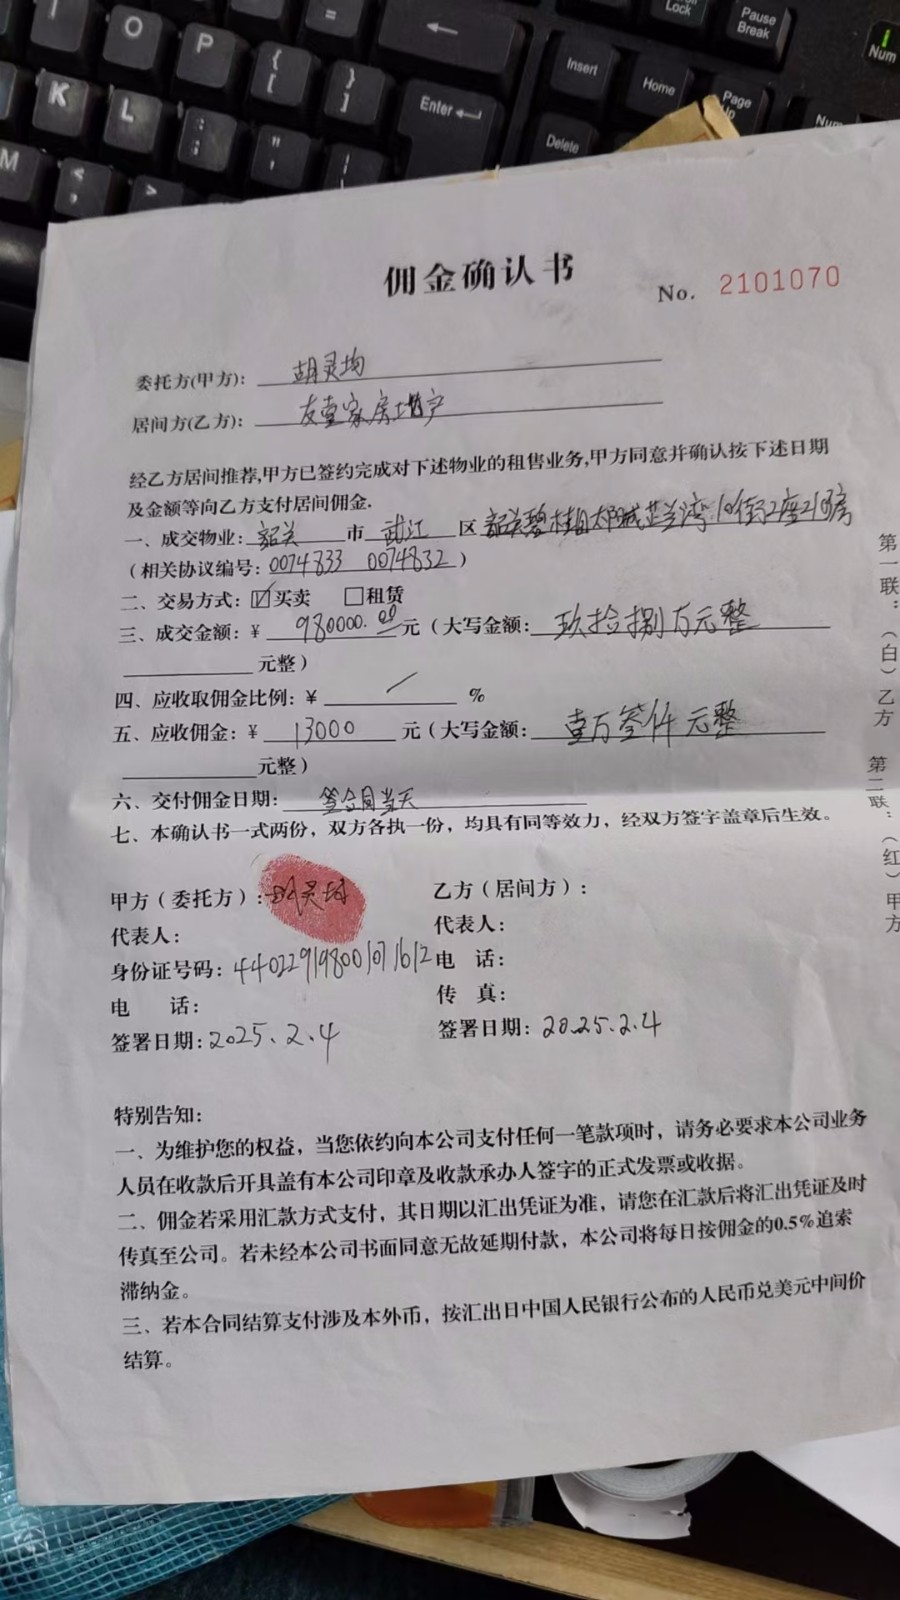 I
O
P
{
[
}
]
=
←
Enter
K
L
:
;
"
'
|
M
<
,
>
Lock
Pause
Break
Insert
Home
Page
Up
Delete
Num
Num
佣金确认书
No. 2101070
委托方(甲方): 胡灵均
居间方(乙方): 友壹家房地产
经乙方居间推荐,甲方已签约完成对下述物业的租售业务,甲方同意并确认按下述日期
及金额等向乙方支付居间佣金.
一、成交物业: 韶关 市 武江 区 韶关碧桂园太阳城芷兰湾10街2座
(相关协议编号: 0074833 0074832)
二、交易方式: ☑买卖 □租赁
三、成交金额: ¥ 980000.00 元(大写金额: 玖拾捌万元整
元整)
四、应收取佣金比例: ¥ / %
五、应收佣金: ¥ 13000 元(大写金额: 壹万叁仟元整
元整)
六、交付佣金日期: 签合同当天
七、本确认书一式两份，双方各执一份，均具有同等效力，经双方签字盖章后生效。
甲方(委托方): 胡灵均
代表人:
身份证号码: 440229198001071612
电 话:
签署日期: 2025.2.4
乙方(居间方):
代表人:
电 话:
传 真:
签署日期: 2025.2.4
特别告知:
一、为维护您的权益，当您依约向本公司支付任何一笔款项时，请务必要求本公司业务
人员在收款后开具盖有本公司印章及收款承办人签字的正式发票或收据。
二、佣金若采用汇款方式支付，其日期以汇出凭证为准，请您在汇款后将汇出凭证及时
传真至公司。若未经本公司书面同意无故延期付款，本公司将每日按佣金的0.5%追索
滞纳金。
三、若本合同结算支付涉及本外币，按汇出日中国人民银行公布的人民币兑美元中间价
结算。
第一联:(白)乙方 第二联:(红)甲方